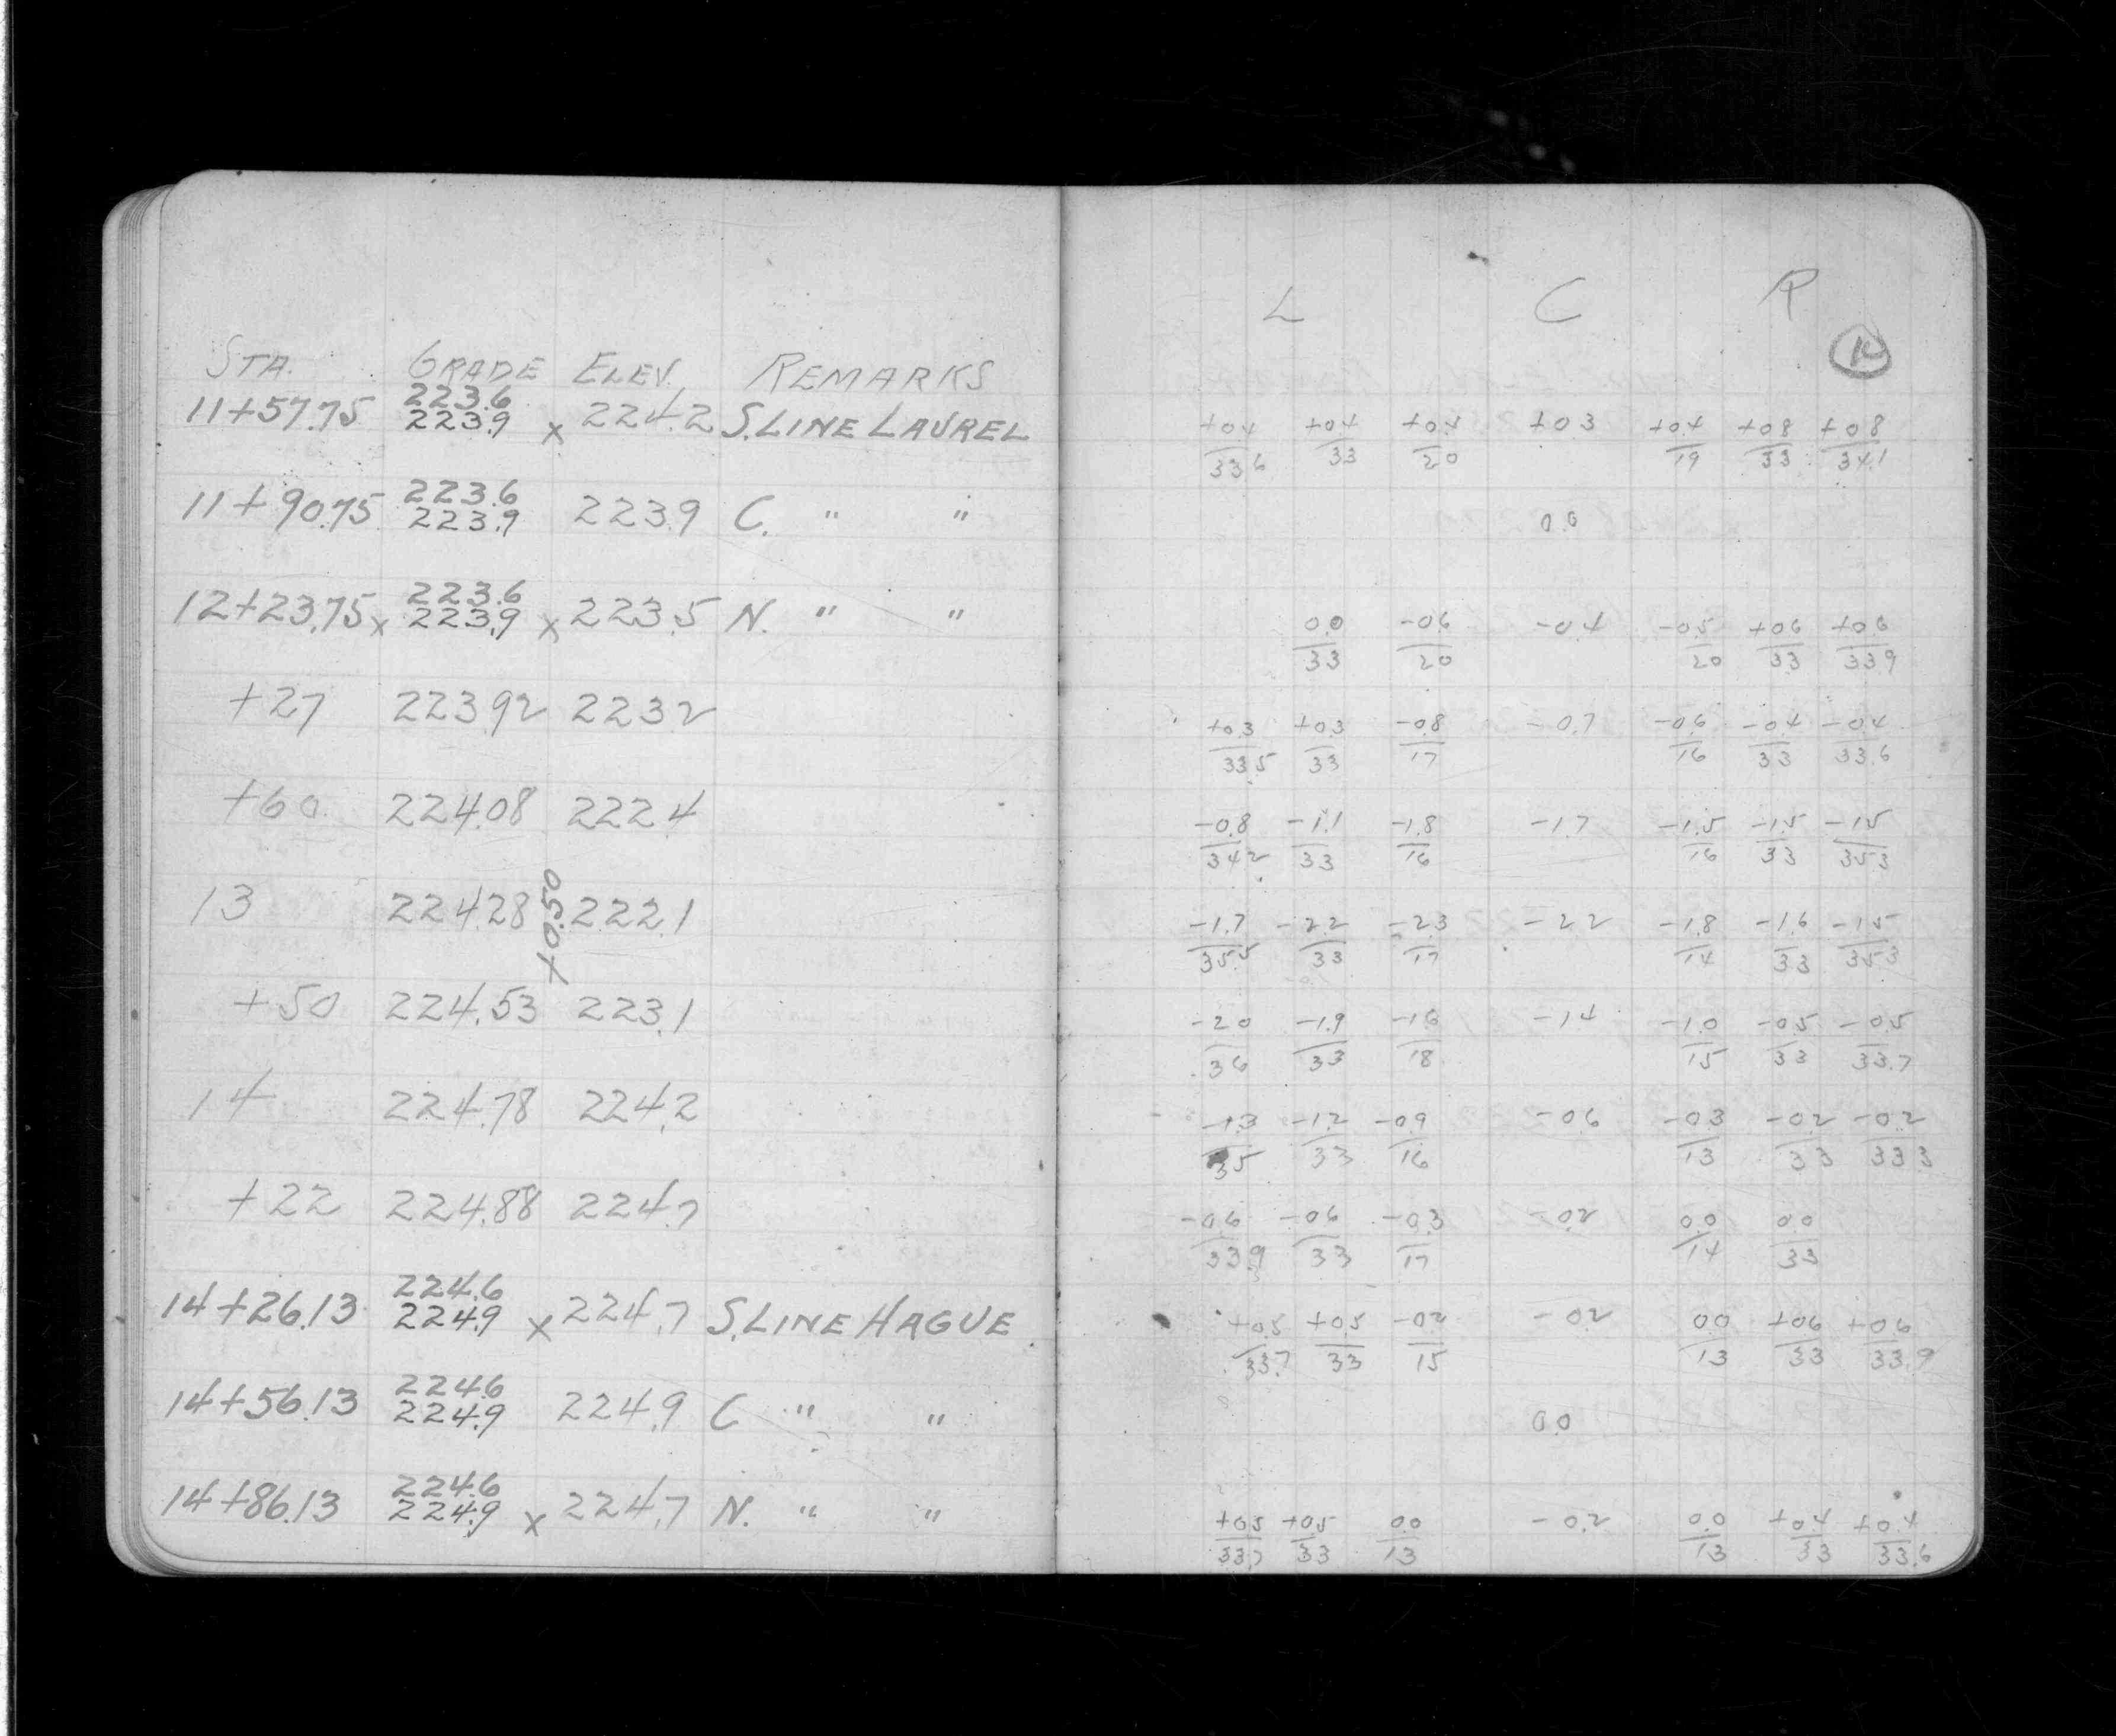 L C R
12
STA. GRADE ELEV. REMARKS
223.6
11+57.75 223.9 x 224.2 S.LINE LAUREL +0.4 +0.4 +0.4 +0.3 +0.4 +0.8 +0.8
33.6 33 20 19 33 34.1
223.6
11+90.75 223.9 223.9 C. " " 0.0
223.6
12+23.75 x 223.9 x 223.5 N. " " 0.0 -0.6 -0.4 -0.5 +0.6 +0.6
33 20 20 33 33.9
+27 223.92 223.2 +0.3 +0.3 -0.8 -0.7 -0.6 -0.4 -0.4
33.5 33 17 16 33 33.6
+60 224.08 222.4 -0.8 -1.1 -1.8 -1.7 -1.5 -1.5 -1.5
34.2 33 16 16 33 35.3
13 224.28 222.1 -1.7 -2.2 -2.3 -2.2 -1.8 -1.6 -1.5
35.5 33 17 14 33 35.3
+0.50
+50 224.53 223.1 -2.0 -1.9 -1.6 -1.4 -1.0 -0.5 -0.5
36 33 18 15 33 33.7
14 224.78 224.2 -1.3 -1.2 -0.9 -0.6 -0.3 -0.2 -0.2
35 33 16 13 33 33.3
+22 224.88 224.7 -0.6 -0.6 -0.3 -0.2 0.0 0.0
33.9 33 17 14 33
224.6
14+26.13 224.9 x 224.7 S.LINE HAGUE +0.5 +0.5 -0.2 -0.2 0.0 +0.6 +0.6
33.7 33 15 13 33 33.9
224.6
14+56.13 224.9 224.9 C " " 0.0
224.6
14+86.13 224.9 x 224.7 N. " " +0.5 +0.5 0.0 -0.2 0.0 +0.4 +0.4
33.7 33 13 13 33 33.6